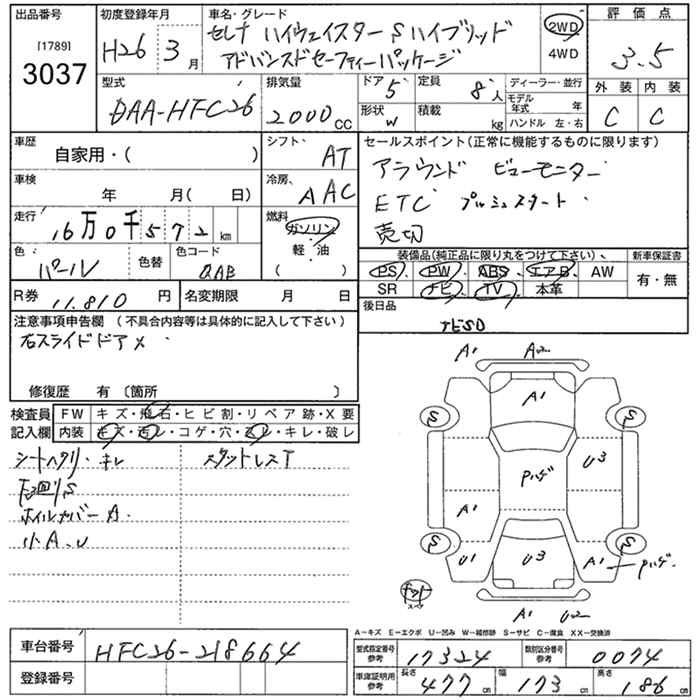 出品番号
[1789]
3037
初度登録年月
H26 3 月
車名・グレード
セレナ ハイウェイスター S ハイブリッド
アドバンスドセーフティーパッケージ
2WD
4WD
評価点
3.5
外装 内装
C C
型式
DAA-HFC26
排気量
2000 CC
ドア 5
定員 8 人
形状 W
積載 kg
ディーラー・並行
モデル年式 年
ハンドル 左・右
車歴
自家用・( )
シフト
AT
車検
年 月( 日)
冷房
AAC
セールスポイント(正常に機能するものに限ります)
アラウンド ビューモニター
ETC プッシュスタート
売切
走行
6万0千572 km
燃料
ガソリン
軽・油
( )
色
パール
色替
色コード
QAB
装備品(純正品に限り丸をつけて下さい)
新車保証書
PS PW ABS エアB AW
SR ナビ TV 本革
有・無
R券 11.810 円
名変期限 月 日
後日品
ナビSD
注意事項申告欄 (不具合内容等は具体的に記入して下さい)
右スライドドア〆
修復歴 有〔箇所 〕
検査員記入欄
FW キズ・飛石・ヒビ割・リペア跡・X要
内装 キズ・汚レ・コゲ・穴・ キレ・破レ
シートヘタリ・キレ スタットレスT
下回りS
ホイルカバーA
小A.U
A1 A2
A1
S S
Pハゲ U3
A1
S S
U1 U3 A1 Pハゲ
スペア
A1 U2
A-キズ E-エクボ U-凹み W-補修跡 S-サビ C-腐食 XX-交換済
車台番号 HFC26-218664
登録番号
型式指定番号 参考 17324
類別区分番号 参考 0074
車庫証明用 参考 長さ 477 cm 幅 173 cm 高さ 186 cm